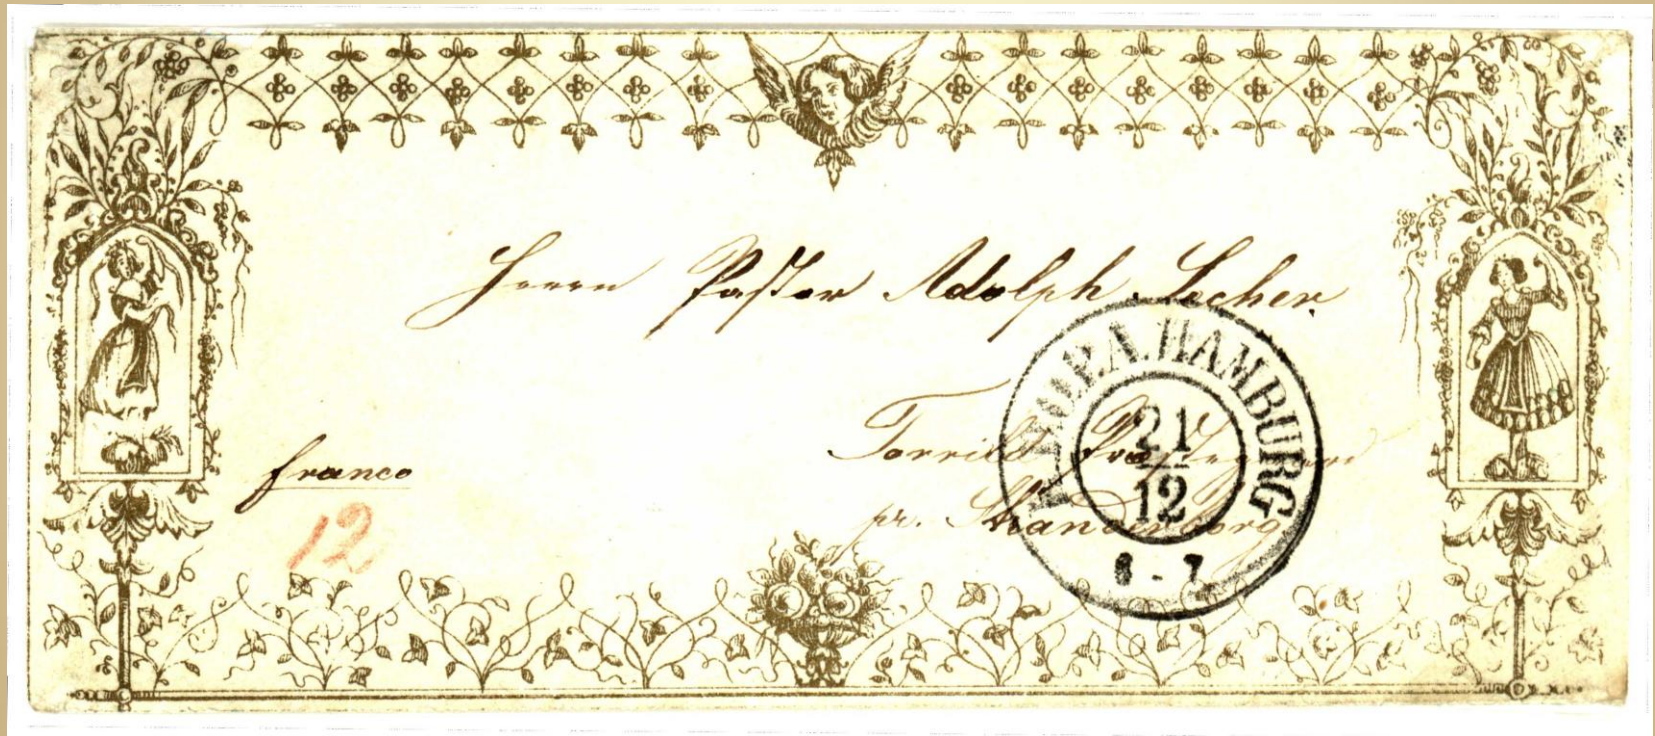 Herrn Pastor Adolph Secher.
Torrild Præstegaard
franco
pr. Skanderborg
12
K.D.O.P.A. HAMBURG
21
12
7